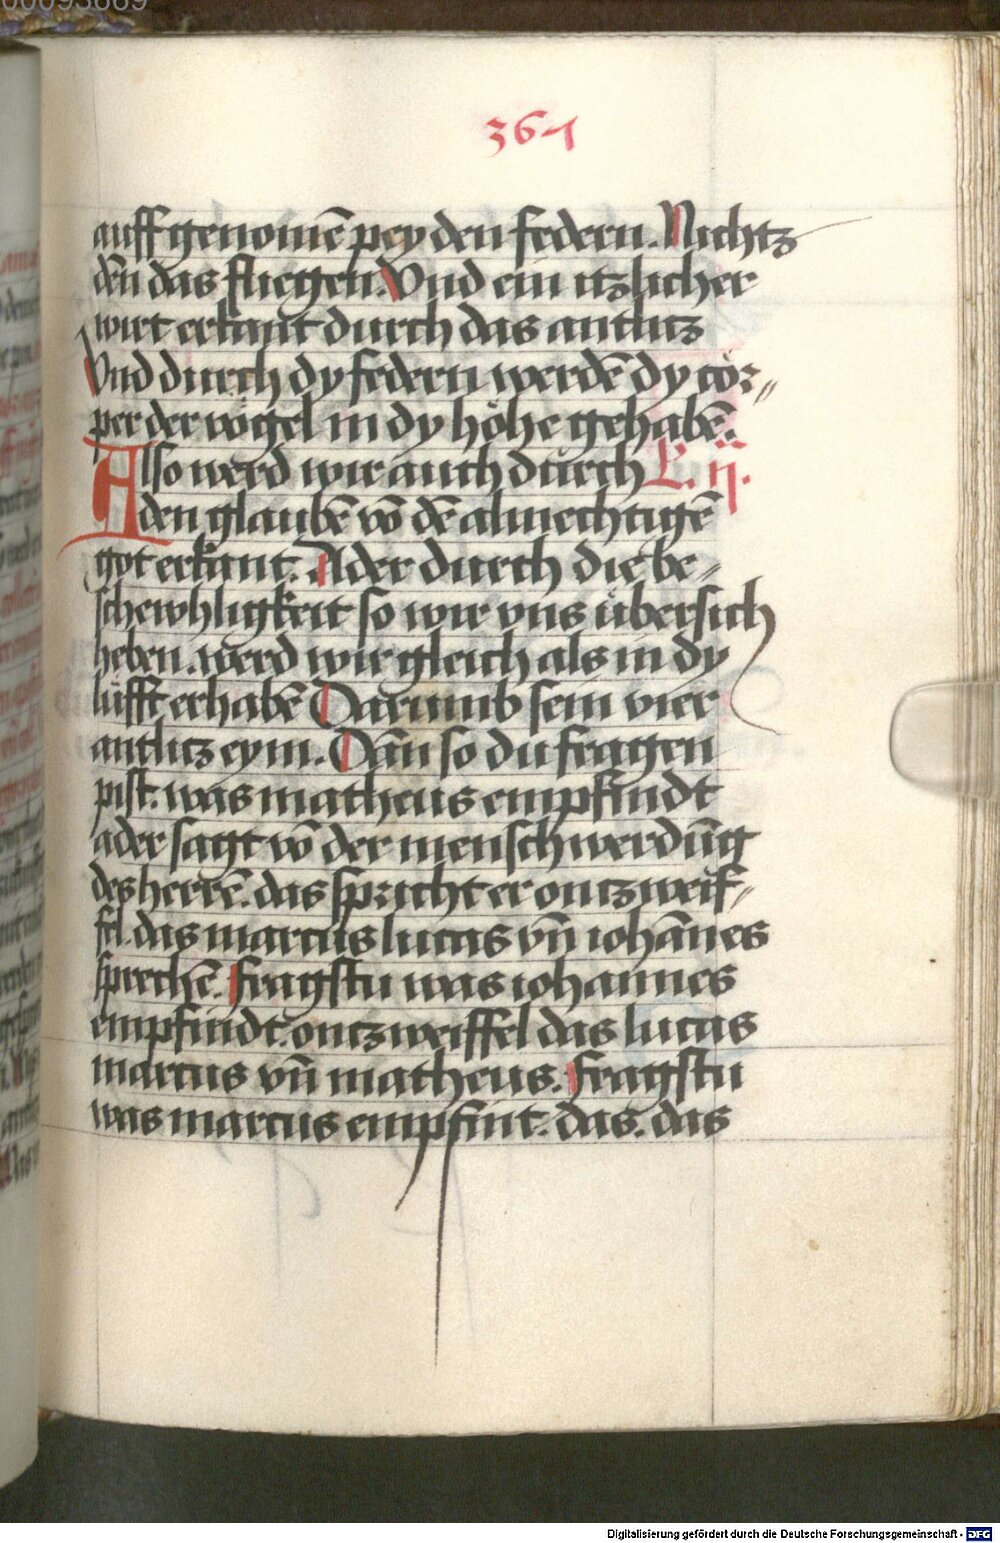 00093669
361
auffgenomē pey den federn. Nichtz
dēn das fliegen. Vnd ein itzlicher
wirt erkant durch das antlitz
Vnd durch dy federn werdē dy cör⸗
per der vögel in dy höhe gehabē.
Also werd wir auch durch L. ij.
den glaubē vō dē almechtigē
got erkant. Ader durch die be⸗
schewhligkeit so wir vns übersich
heben. werd wir gleich als in dy
lüfft erhabē Darumb sein vier
antlitz eym. Dān so du fragen
pist. was matheus empfindt
ader sagt vō der menschwerdūg
des herrē. das spricht er ontzweif⸗
fel. das marcus lucas vn̄ iohānes
sprechē. Fragstu was iohannes
empfindt. ontzweiffel das lucas
marcus vn̄ matheus. Fragstu
was marcus empfint. das. das
Digitalisierung gefördert durch die Deutsche Forschungsgemeinschaft - DFG